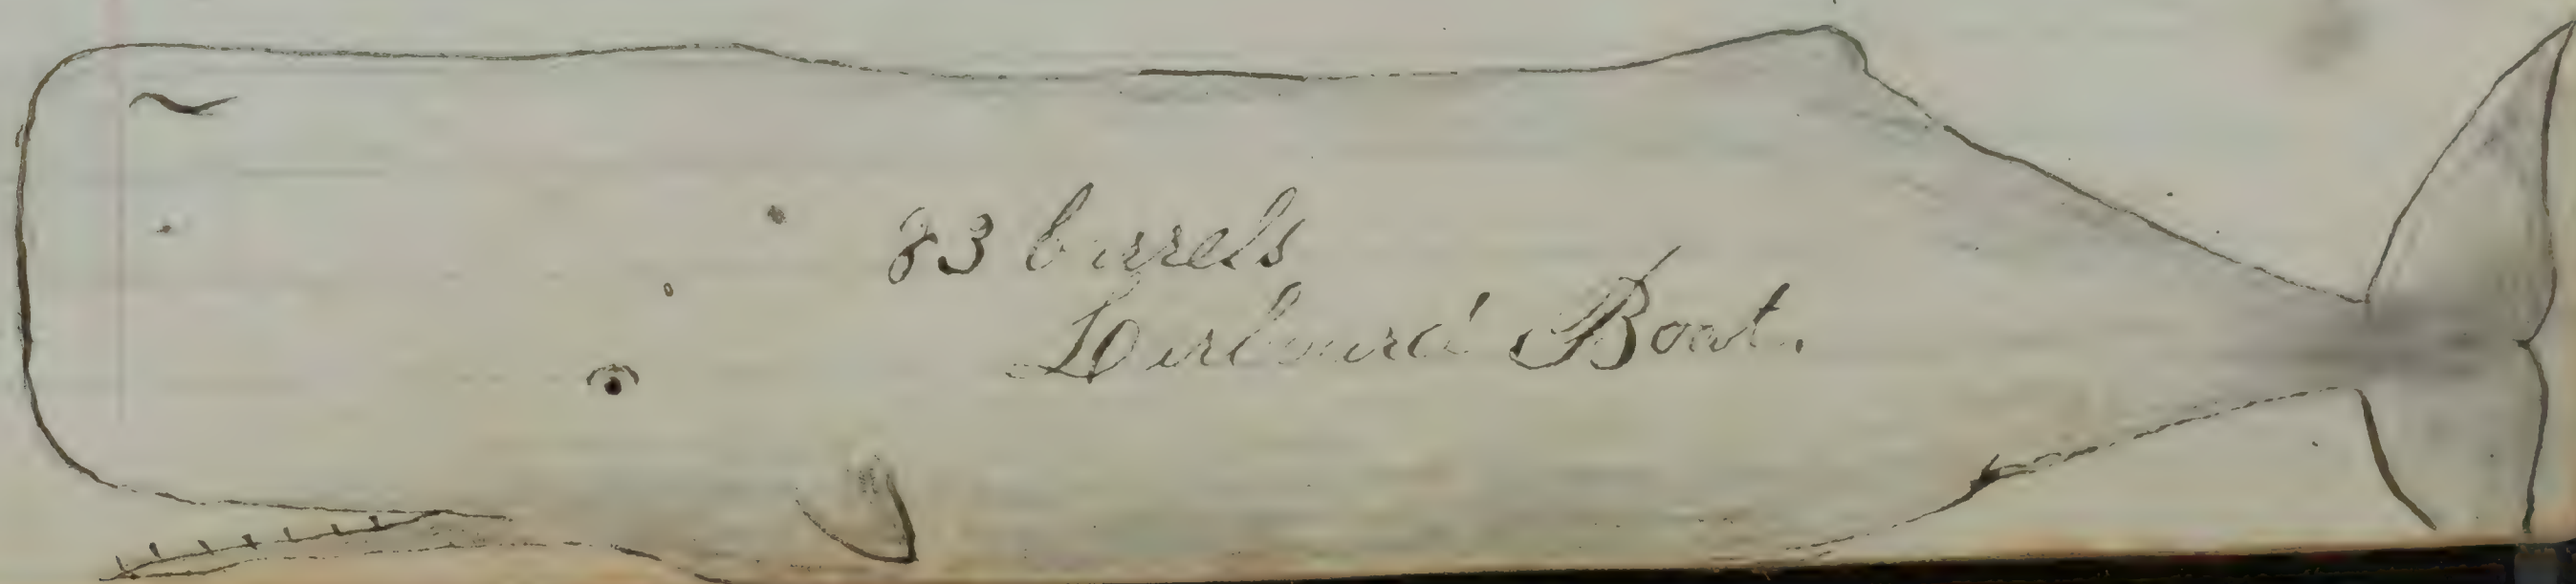 83 barrels
Larboard Boat.